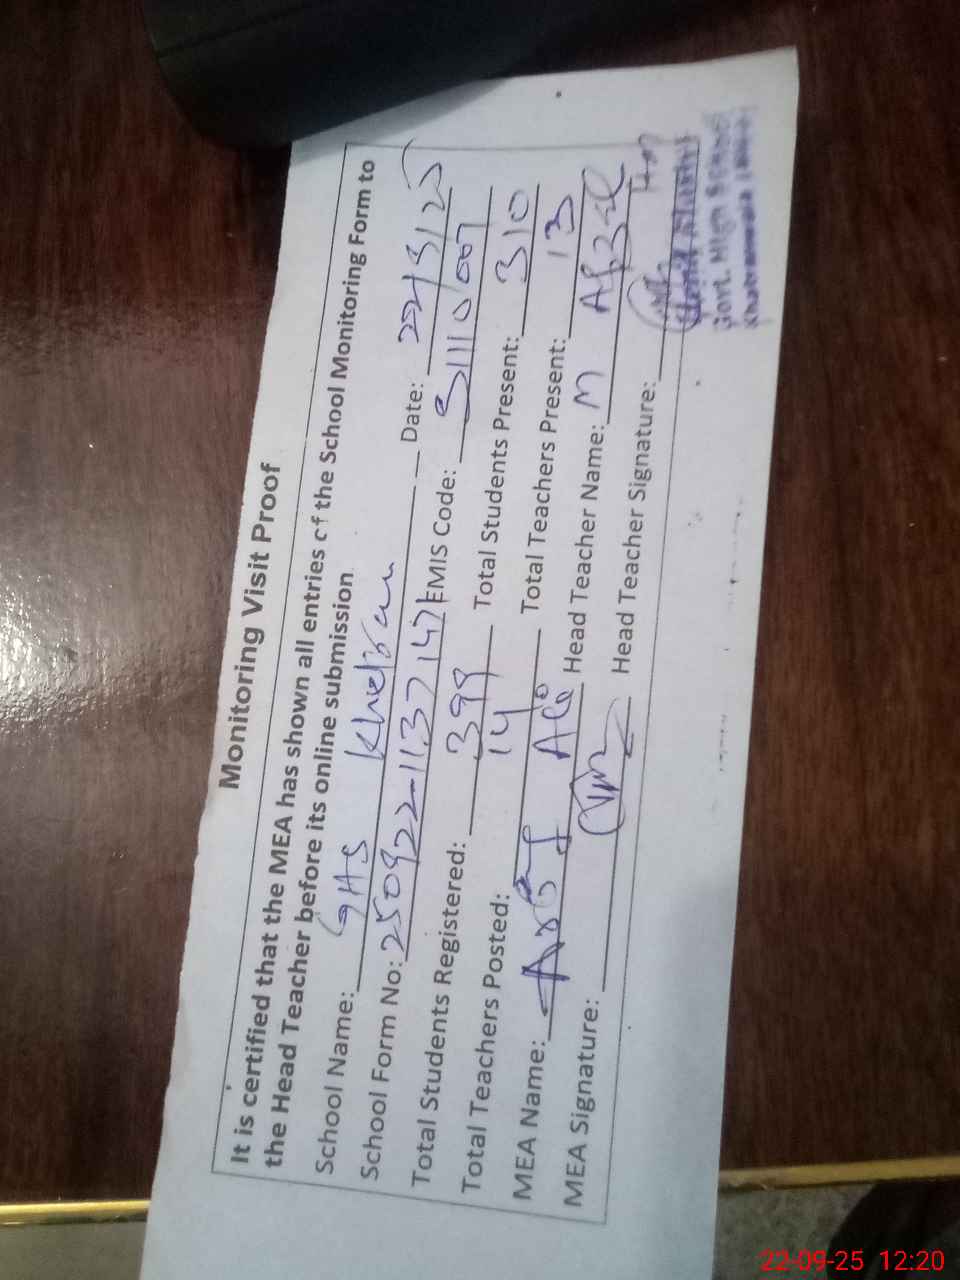 Monitoring Visit Proof
It is certified that the MEA has shown all entries of the School Monitoring Form to
the Head Teacher before its online submission
School Name: GHS
School Form No: 250922-1137147 Date: 22/9/25
Total Students Registered: 399 EMIS Code: 31110007
Total Teachers Posted: 14 Total Students Present: 310
Total Teachers Present: 13
MEA Name: Ali Head Teacher Name: M Afzal
MEA Signature: Head Teacher Signature:
Govt. High School
22-09-25 12:20